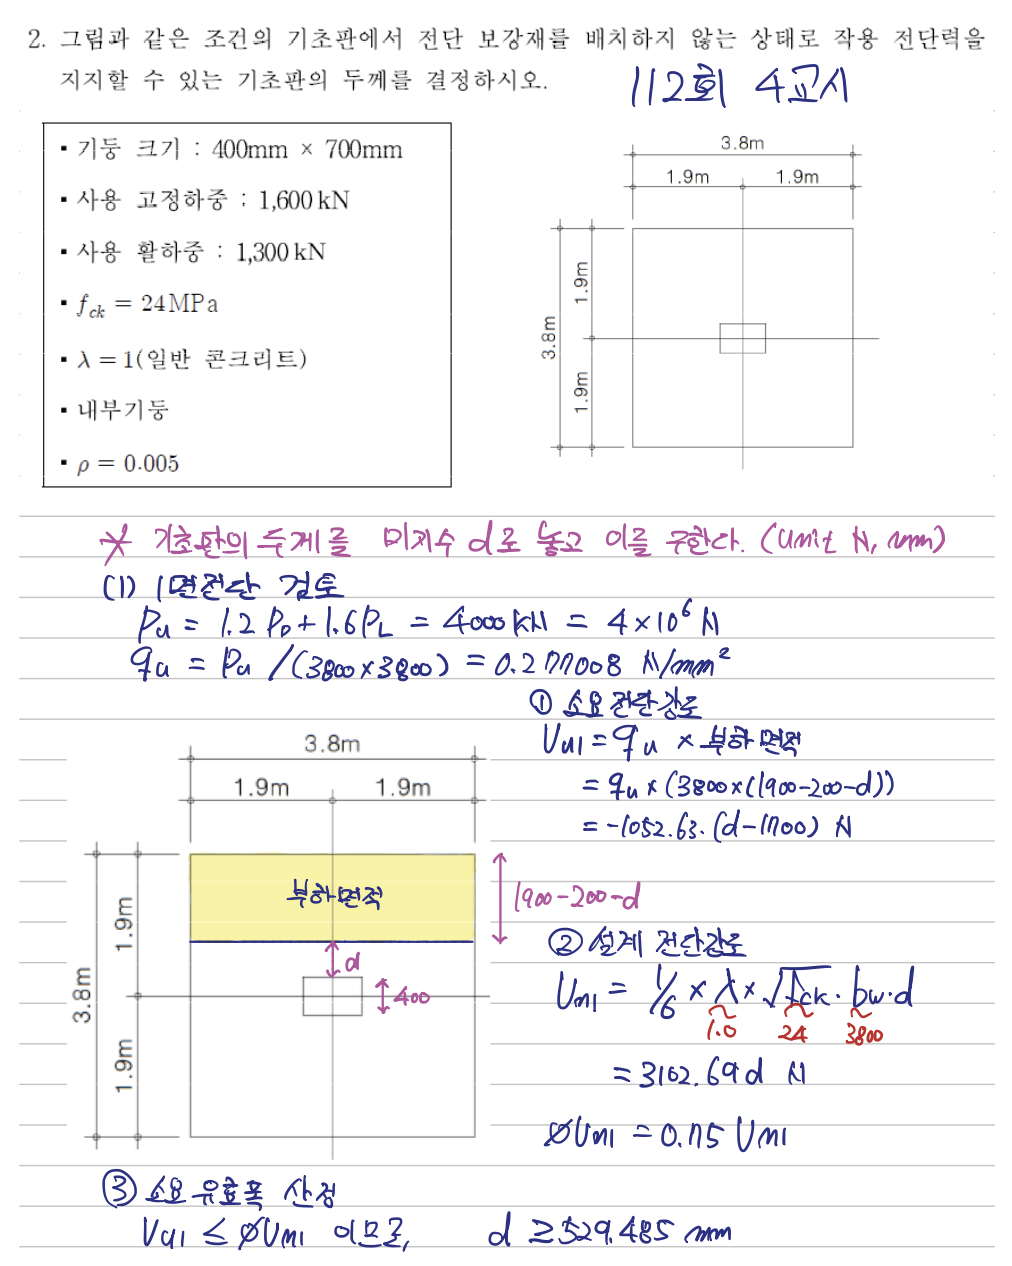 2. 그림과 같은 조건의 기초판에서 전단 보강재를 배치하지 않는 상태로 작용 전단력을
지지할 수 있는 기초판의 두께를 결정하시오.
112회 4교시
▪ 기둥 크기 : 400mm × 700mm
▪ 사용 고정하중 : 1,600 kN
▪ 사용 활하중 : 1,300 kN
▪ fck = 24MPa
▪ λ = 1(일반 콘크리트)
▪ 내부기둥
▪ ρ = 0.005
3.8m
1.9m 1.9m
1.9m
3.8m
1.9m
* 기초판의 두께를 미지수 d로 놓고 이를 구한다. (unit N, mm)
(1) 1면전단 검토
Pu = 1.2 PD + 1.6PL = 4000 kN = 4×10⁶ N
qu = Pu /(3800×3800) = 0.277008 N/mm²
① 소요 전단강도
Vu1 = qu × 부하면적
= qu × (3800×(1900-200-d))
= -1052.63·(d-1700) N
3.8m
1.9m 1.9m
부하면적
1900-200-d
1.9m
d
3.8m
400
1.9m
② 설계 전단강도
Vn1 = 1/6 × λ × √fck · bw·d
1.0 24 3800
= 3102.69d N
ØVn1 = 0.75 Vn1
③ 소요 유효폭 산정
Vu1 ≤ ØVn1 이므로, d ≥ 529.485 mm